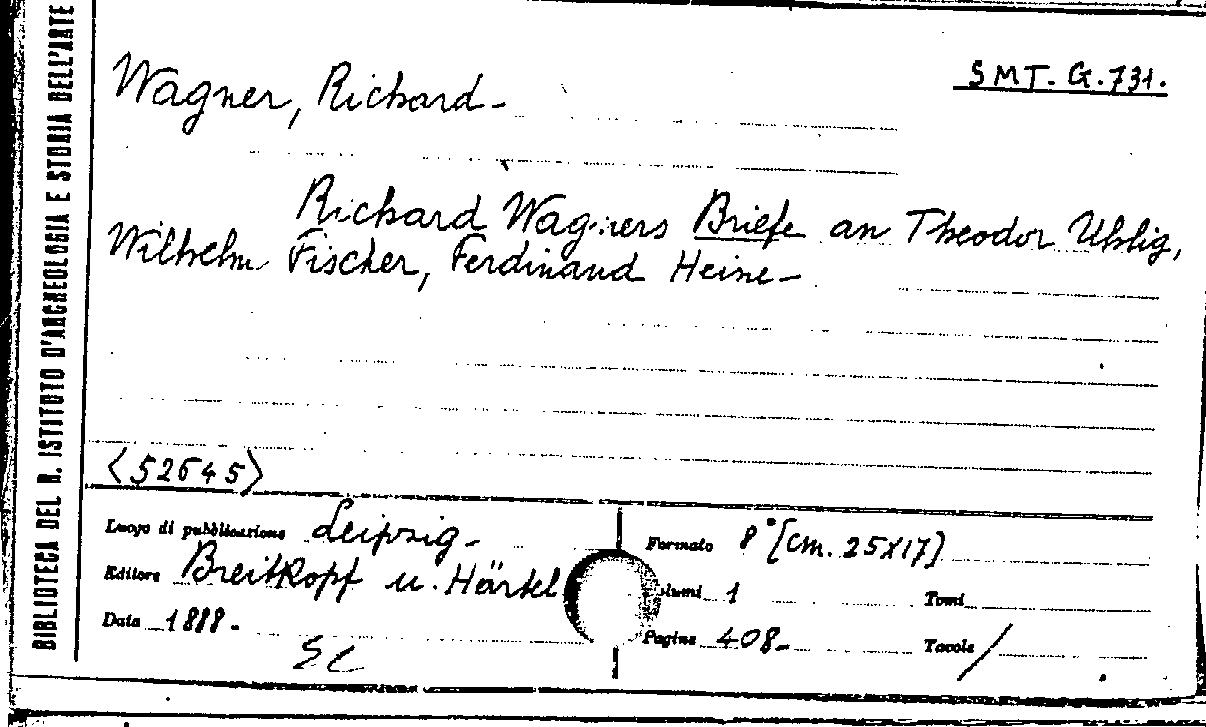 BIBLIOTECA DEL R. ISTITUTO D'ARCHEOLOGIA E STORIA DELL'ARTE
SMT. G. 731.
Wagner, Richard-
Richard Wagners Briefe an Theodor Uhlig,
Wilhelm Fischer, Ferdinand Heine-
<52645>
Luogo di pubblicazione Leipzig-
Editore Breitkopf u. Härtel
Data 1888.
Formato 8° [cm. 25x17]
lumi 1 Tomi
Pagine 408- Tavole /